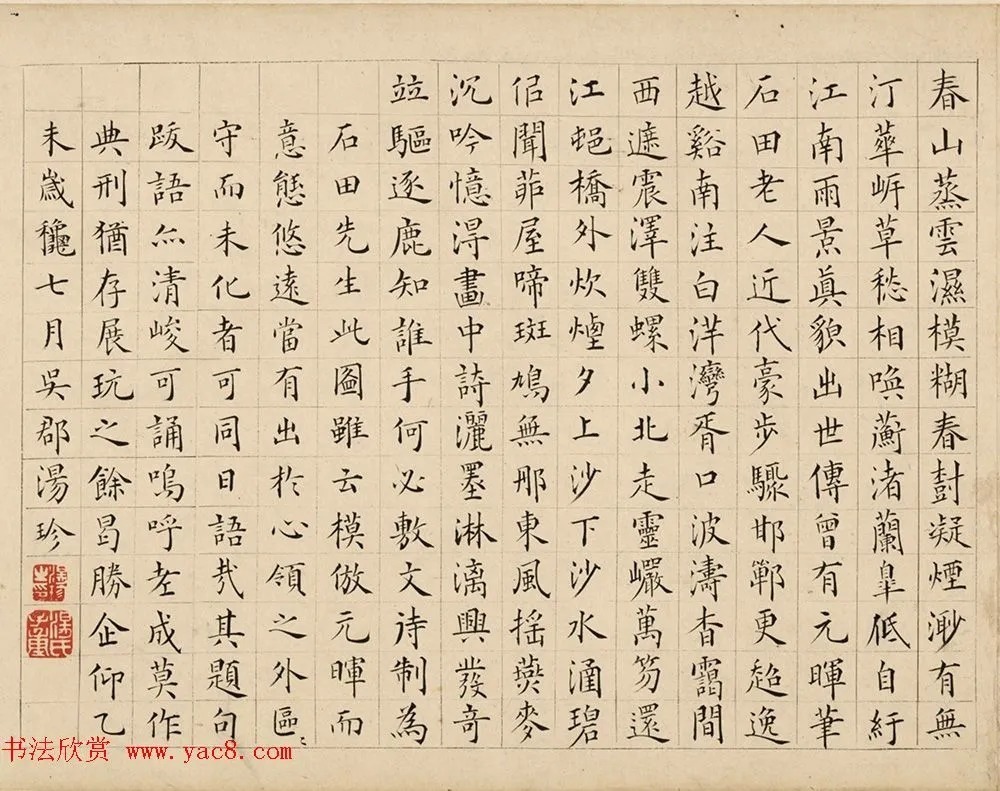 春山蒸雲濕模糊春樹凝煙渺有無
汀葦岍草愁相喚蘅渚蘭皐低自紆
江南雨景眞貌出世傳曾有元暉筆
石田老人近代豪步驟邯鄲更超逸
越谿南注白洋灣胥口波濤杳靄間
西遮震澤雙螺小北走靈巖萬笏還
江蜺橋外炊煙夕上沙下沙水涵碧
但聞茆屋啼斑鳩無那東風揺燕麥
沉吟憶淂畫中詩灑墨淋漓興發奇
竝驅逐鹿知誰手何必敷文詩制為
石田先生此圖雖云模倣元暉而
意態悠遠當有出於心領之外區〻
守而未化者可同日語㦲其題句
䟦語亦清峻可誦嗚呼老成莫作
典刑猶存展玩之餘曷勝企仰乙
未嵗龝七月吳郡湯珍
书法欣赏 www.yac8.com